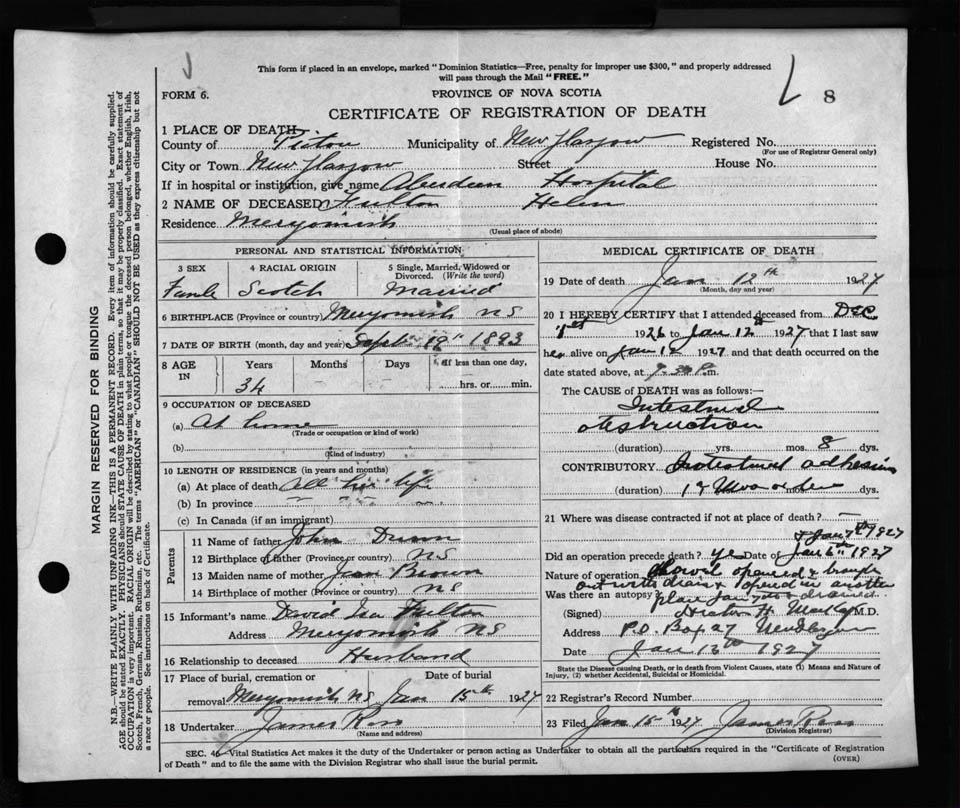 This form if placed in an envelope, marked "Dominion Statistics—Free, penalty for improper use $300," and properly addressed
will pass through the Mail "FREE."
8
FORM 6.
PROVINCE OF NOVA SCOTIA
CERTIFICATE OF REGISTRATION OF DEATH
1 PLACE OF DEATH
County of Pictou Municipality of New Glasgow Registered No.
(For use of Registrar General only)
City or Town New Glasgow Street House No.
If in hospital or institution, give name Aberdeen Hospital
2 NAME OF DECEASED Fulton Helen
Residence Merigomish
(Usual place of abode)
PERSONAL AND STATISTICAL INFORMATION
3 SEX
4 RACIAL ORIGIN
5 Single, Married, Widowed or Divorced. (Write the word)
Female Scotch Married
6 BIRTHPLACE (Province or country) Merigomish NS
7 DATE OF BIRTH (month, day and year) Sept 19th 1893
8 AGE IN
Years Months Days If less than one day,
34 hrs. or min.
9 OCCUPATION OF DECEASED
(a) At home
(Trade or occupation or kind of work)
(b)
(Kind of industry)
10 LENGTH OF RESIDENCE (in years and months)
(a) At place of death All her life
(b) In province
(c) In Canada (if an immigrant)
Parents
11 Name of father John Dunn
12 Birthplace of father (Province or country) NS
13 Maiden name of mother Jean Brown
14 Birthplace of mother (Province or country) NS
15 Informant's name David Fulton
Address Merigomish NS
16 Relationship to deceased Husband
17 Place of burial, cremation or Date of burial
removal Merigomish NS Jan 15th 1927
18 Undertaker James Ross
(Name and address)
MEDICAL CERTIFICATE OF DEATH
19 Date of death Jan 12th 1927
(Month, day and year)
20 I HEREBY CERTIFY that I attended deceased from Dec
1926 to Jan 12th 1927 that I last saw
her alive on Jan 12 1927 and that death occurred on the
date stated above, at 9.30 P.m.
The CAUSE of DEATH was as follows:—
Intestinal
obstruction
(duration) yrs. mos. 8 dys.
CONTRIBUTORY. Intestinal adhesions
(duration) dys.
21 Where was disease contracted if not at place of death? —
& Jan 7th 1927
Did an operation precede death? yes Date of Jan 6th 1927
Nature of operation Bowel opened &
out with drain & opened in another
Was there an autopsy? place
(Signed) M.D.
Address P.O. Box 27 New Glasgow
Date Jan 13th 1927
State the Disease causing Death, or in death from Violent Causes, state (1) Means and Nature of Injury, (2) whether Accidental, Suicidal or Homicidal.
22 Registrar's Record Number
23 Filed Jan 15th 1927 James Ross
(Division Registrar)
SEC. 46—Vital Statistics Act makes it the duty of the Undertaker or person acting as Undertaker to obtain all the particulars required in the "Certificate of Registration
of Death" and to file the same with the Division Registrar who shall issue the burial permit.
(OVER)
MARGIN RESERVED FOR BINDING
N.B.—WRITE PLAINLY WITH UNFADING INK—THIS IS A PERMANENT RECORD. Every item of information should be carefully supplied.
AGE should be stated EXACTLY. PHYSICIANS should STATE CAUSE OF DEATH in plain terms, so that it may be properly classified. Exact statement of
OCCUPATION is very important. RACIAL ORIGIN will be described by stating to what people or tongue the deceased person belonged, whether English, Irish,
Scotch, French, German, Russian, Ruthenian, etc. The terms "AMERICAN" or "CANADIAN" SHOULD NOT BE USED as they express citizenship but not
a race or people. See instructions on back of Certificate.